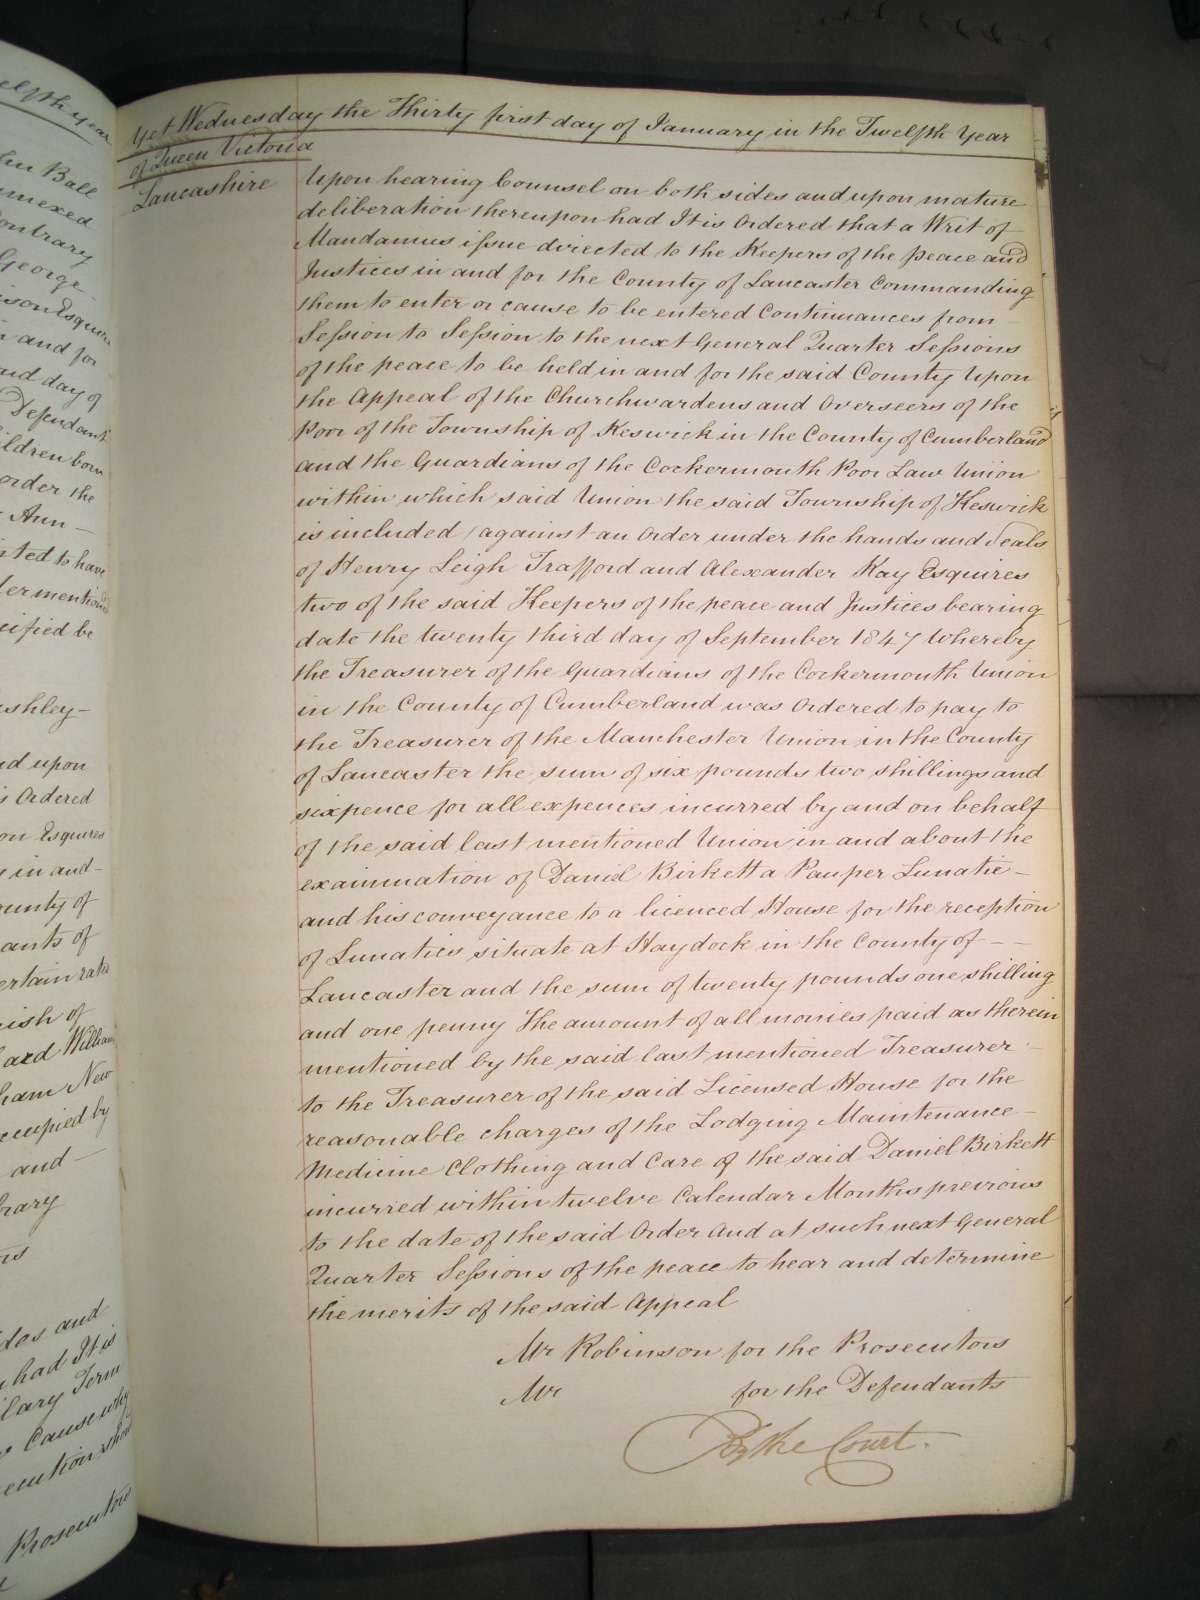 elfth year
hn Ball
nnexed
ontrary
George
ison Esquire
n and for
ond day of
Defendant
ildren born
order the
Ann
nted to have
er mentioned
cified be
shley
d upon
is Ordered
on Esquires
in and
ounty of
ants of
ertain rates
ish of
ard William
ham New
ccupied by
and
rary
des and
had It is
lary Term
Cause why
ecution sho
Prosecutors
Yet Wednesday the Thirty first day of January in the Twelfth Year
of Queen Victoria
Lancashire
Upon hearing Counsel on both sides and upon mature
deliberation thereupon had It is Ordered that a Writ of
Mandamus issue directed to the Keepers of the peace and
Justices in and for the County of Lancaster Commanding
them to enter or cause to be entered Continuances from
Session to Session to the next General Quarter Sessions
of the peace to be held in and for the said County Upon
the Appeal of the Churchwardens and Overseers of the
Poor of the Township of Keswick in the County of Cumberland
and the Guardians of the Cockermouth Poor Law Union
within which said Union the said Township of Keswick
is included / against an Order under the hands and Seals
of Henry Leigh Trafford and Alexander Kay Esquires
two of the said Keepers of the peace and Justices bearing
date the twenty third day of September 1847 whereby
the Treasurer of the Guardians of the Cockermouth Union
in the County of Cumberland was Ordered to pay to
the Treasurer of the Manchester Union in the County
of Lancaster the sum of six pounds two shillings and
sixpence for all expences incurred by and on behalf
of the said last mentioned Union in and about the
examination of Daniel Birkett a Pauper Lunatic –
and his conveyance to a licenced House for the reception
of Lunatics situate at Haydock in the County of – –
Lancaster and the sum of twenty pounds one shilling
and one penny the amount of all monies paid as therein
mentioned by the said last mentioned Treasurer
to the Treasurer of the said Licensed House for the
reasonable charges of the Lodging Maintenance –
Medicine Clothing and Care of the said Daniel Birkett
incurred within twelve Calendar Months previous
to the date of the said Order And at such next General
Quarter Sessions of the peace to hear and determine
the merits of the said Appeal
Mr Robinson for the Prosecutors
Mr for the Defendants
By the Court.